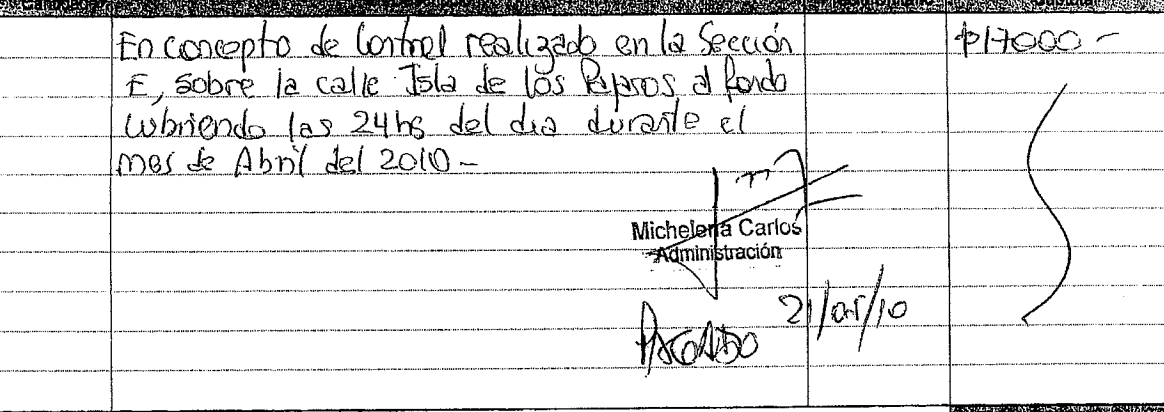 En concepto de Control realizado en la Sección $17000-
E, sobre la calle Isla de los Pájaros al fondo
cubriendo las 24hs del dia durante el
mes de Abril del 2010-
Michelena Carlos
Administración
21/05/10
PAGADO